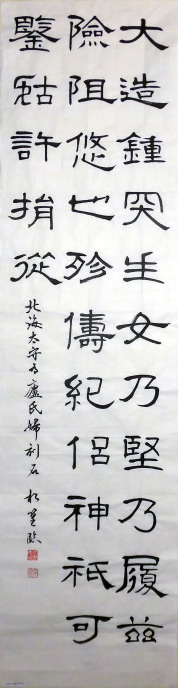 大造鍾突生女乃堅乃履茲
險阻悠也殄儔紀侶神祇可
鑒祜許捐從
北海太守為盧氏婦刻石